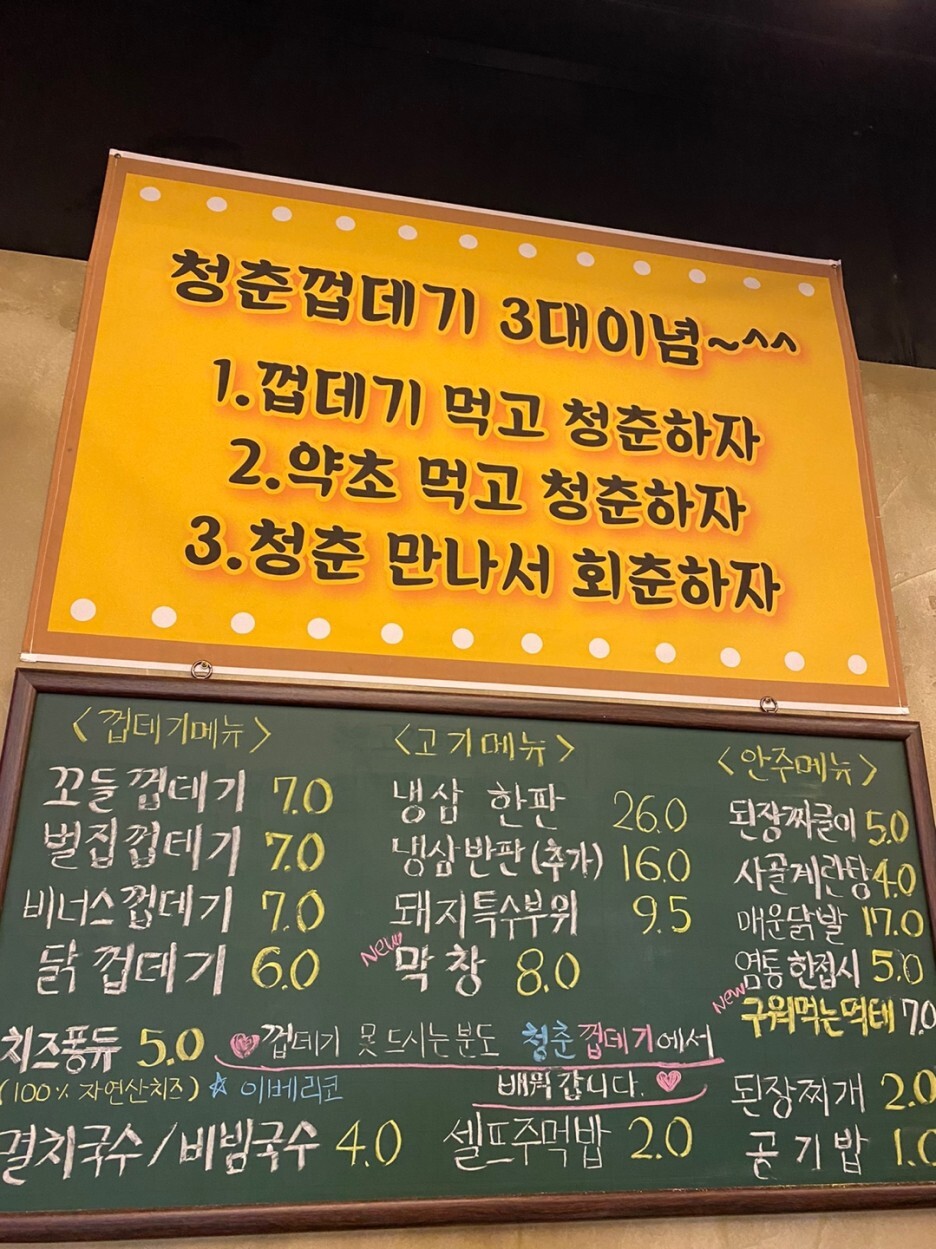 청춘껍데기 3대이념~^^
1.껍데기 먹고 청춘하자
2.약초 먹고 청춘하자
3.청춘 만나서 회춘하자
<껍데기메뉴>
꼬들껍데기 7.0
벌집껍데기 7.0
비너스껍데기 7.0
닭껍데기 6.0
치즈퐁듀 5.0
(100% 자연산치즈)
<고기메뉴>
냉삼 한판 26.0
냉삼반판(추가) 16.0
돼지특수부위 9.5
New 막창 8.0
<안주메뉴>
된장짜글이 5.0
사골계란탕 4.0
매운닭발 17.0
염통한접시 5.0
New 구워먹는먹태 7.0
♥껍데기 못드시는분도 청춘껍데기에서
배워갑니다. ♥
☆ 이베리코
멸치국수/비빔국수 4.0
셀프주먹밥 2.0
된장찌개 2.0
공기밥 1.0